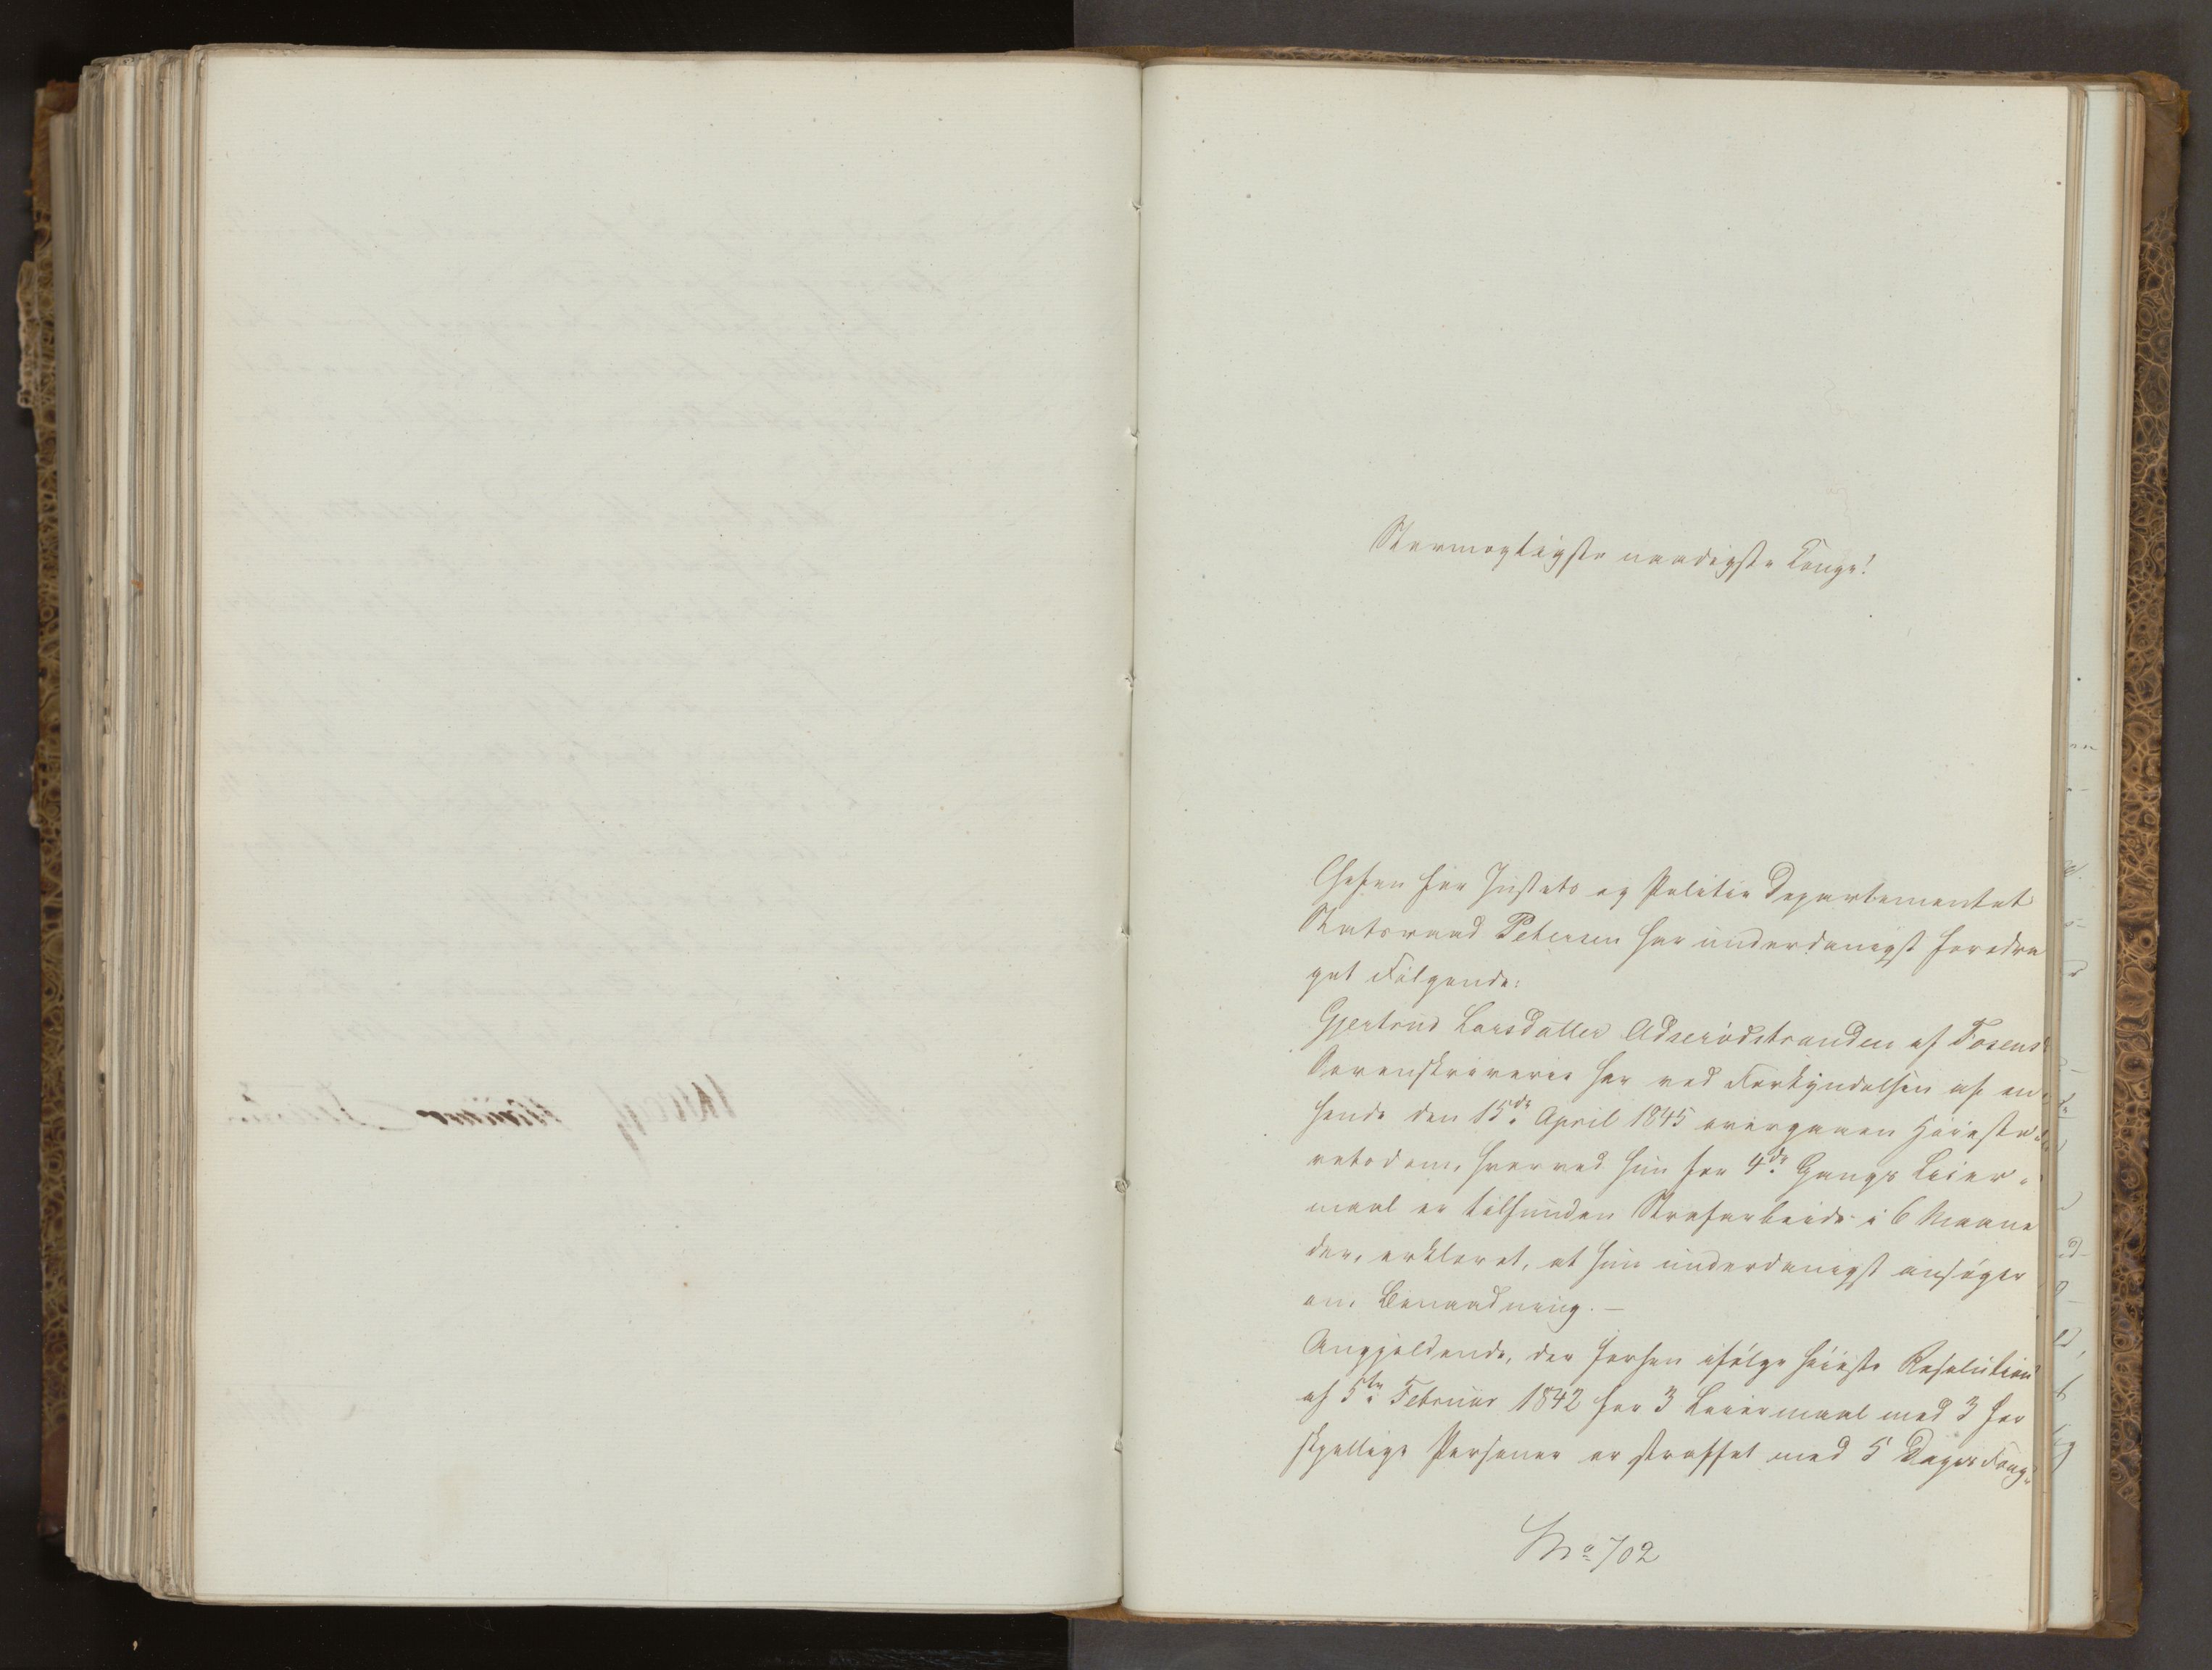 Stormægtigste naadigste Konge!
Chefen for Justits og Politie Departementet
Statsraad Petersen har underdanigst foredra
get Følgende:
Gjertrud Larsdatter Adserødstranden af Fosens
Sorenskriverie har ved Forkyndelsen af en
hende den 15de April 1845 overgaaen Høieste-
retsdom, hvorved hun for 4de Gangs Leier-
maal er tilfunden Strafarbeide i 6 Maane
der, erklæret, at hun underdanigst ansøger
om Benaadning. —
Angjeldende, der forhen ifølge høieste Resolution
af 5te Februar 1842 for 3 Leiermaal med 3 for
skjellige Personer er straffet med 5 Dages Fæng-
No 702